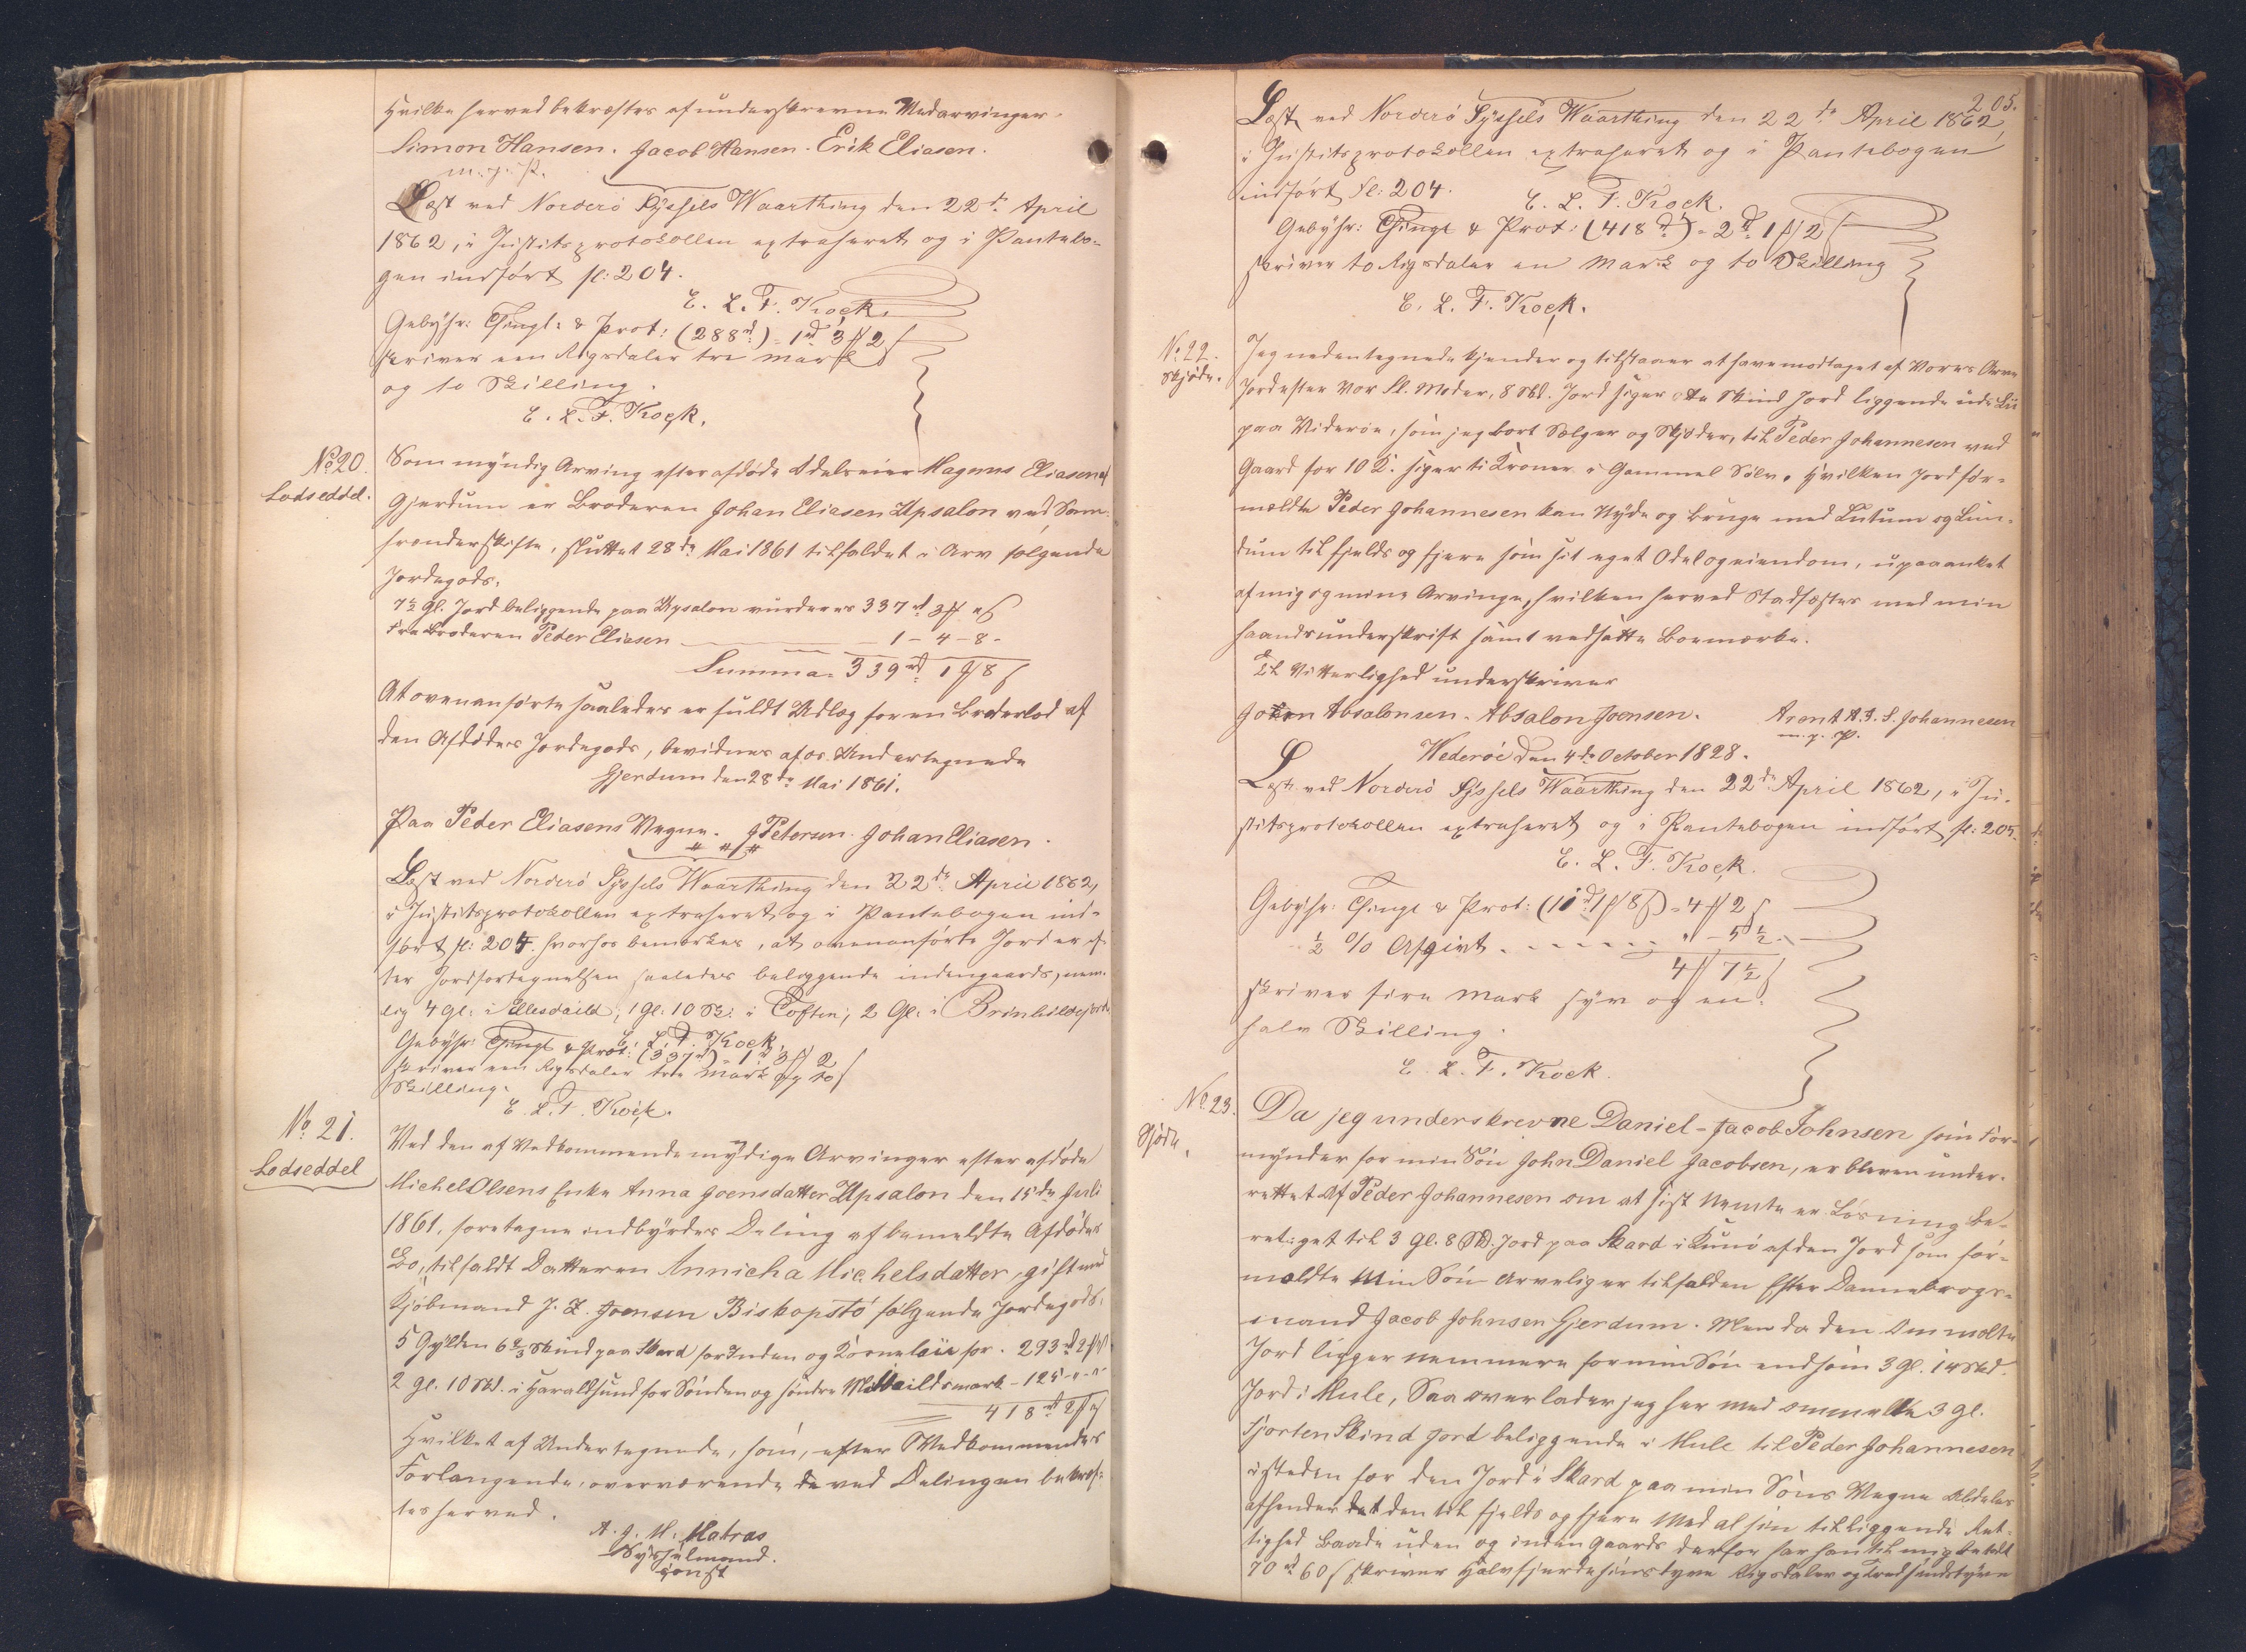 Hvilke herved bekræftes af underskrevne Medarvinger.
Simon Hansen. Jacob Hansen. Erik Eliasen.
m. f. P.
Læst ved Norderö Syssels Waarthing den 22de April
1862, i Justitsprotokollen extraheret og i Pantebo-
gen indfört fl: 204.
E. L. F. Kock.
Gebyhr: Thingl: & Prot: (288 rd) = 1 rd 3 ₰ 2 s
skriver een Rigsdaler tre Mark
og to Skilling.
E. L. F. Kock.
No 20.
Lodseddel.
Som myndig Arving efter afdöde Odelseier Magnus Eliasen
Gjerdum er Broderen Johan Eliasen Upsalon ved Sam-
frænderskifte, sluttet 28de Mai 1861 tilfaldet i Arv følgende
Jordegods.
7½ Gl. Jord beliggende paa Upsalon vurderes 337 rd 3 ₰ " s
Fra Broderen Peder Eliasen 1 - 4 - 8 -
Summa 339 rd 1 ₰ 8 s
At ovenanførte saaledes er fuldt Udlæg for en Broderlod af
den Afdødes Jordegods, bevidnes af os Undertegnede
Gjerdum den 28de Mai 1861.
Paa Peder Eliasens Vegne. J Petersen. Johan Eliasen.
Læst ved Norderö Syssels Waarthing den 22de April 1862,
i Justitsprotokollen extraheret og i Pantebogen ind-
fört fl: 204. hvorhos bemærkes, at ovenanførte Jord er ef-
ter Jordfortegnelsen saaledes beliggende indengaards, nem-
lig 4 Gl: i Ellesdaild, 1 Gl: 10 Sk: i Toften, 2 Gl: i Brinhildsjorde
E. L. F. Kock.
Gebyhr: Thingl & Prot: (337 rd) = 1 rd 3 ₰ 2 s
skriver een Rigsdaler tre Mark og to
Skilling.
E. L. F. Kock.
No 21.
Lodseddel
Ved den af Vedkommende mydige Arvinger efter afdöde
Michel Olsens Enke Anna Joensdatter Upsalon den 15de Juli
1861. foretagne indbyrdes Deling af bemeldte Afdödes
Bo, tilfaldt Datteren Annicha Michelsdatter, gift med
Kjöbmand J. Z. Joensen Biskopstö følgende Jordegods:
5 Gylden 6⅔ Skind paa Skard for Inden og for 293 rd 2 ₰
2 Gl. 10 Skd. i Haraldsund for Sönden og söndre - 125 - " - "
418 rd 2 ₰ " s
Hvilket af Undertegnede, som, efter Vedkommendes
Forlangende, overværende ved Delingen bekræf-
tes herved.
A. J. M. Matras
Sysselmand.
const
205.
Læst ved Norderö Syssels Waarthing den 22de April 1862,
i Justitsprotokollen extraheret og i Pantebogen
indfört fl: 204.
E. L. F. Kock.
Gebyhr: Thingl & Prot: (418 rd) = 2 rd 1 ₰ 2 s
skriver to Rigsdaler en Mark og to Skilling
E. L. F. Kock.
No 22.
Skjöde.
Jeg nedentegnede kjender og tilstaaer at have modtaget af Vores Arve
Jord efter Vor Sl. Moder, 8 Skd. Jord siger otte Skind Jord liggende
paa Viderøe, som jeg bort Sælger og Skjøder, til Peder Johannesen ved
Gaard for 10 K. siger ti Kroner i Gammel Sølv. Hvilken Jord for-
meldte Peder Johannesen kan Nyde og bruge med Lutum og Lun-
dum til fjelds og fjære som sit eget Odel og eiendom, upaaanket
af mig og mine Arvinge, hvilken herved Stadfæstes med min
haands underskrift samt vedsatte Boemærke.
Til Vitterlighed underskriver
Joken Absalonsen. Absalon Joensen. Arent A.J.S. Johannesen
m. f. P.
Wederöe den 4de October 1828.
Læst ved Norderö Syssels Waarthing den 22de April 1862, i Ju-
stitsprotokollen extraheret og i Pantebogen indfört fl: 205.
E. L. F. Kock.
Gebyhr: Thingl & Prot: (10 rd 1 ₰ 8 s) = 4 ₰ 2 s
½ % Afgivt. . - - - - " - 5½ -
4 ₰ 7½ s
skriver fire Mark syv og en
halv Skilling.
E. L. F. Kock.
No 23.
Sjöde.
Da jeg underskrevne Daniel-Jacob Johnsen som For-
mynder for min Sön John Daniel Jacobsen, er bleven under-
rettet Af Peder Johannesen om at sist Nemte er Løsning be-
retiget til 3 Gl. 8 Skd. Jord paa Skard i Kunö af den Jord som for-
meldte Min Sön Arveliger tilfalden Efter Dannebrogs-
mand Jacob Johnsen Gjerdum. Men da den Ommelte
Jord ligger nemmere for min Sön end som 3 Gl. 14 Skd.
Jord i Mule, Saa overlader jeg her med ommelte 3 Gl.
Fjorten Skind Jord beliggende i Mule til Peder Johannesen
i steden for den Jord i Skard paa min Söns Vegne Aldeles
afhender det den til fjelds og fjære Med al sin tilliggende Ret-
tighed Baade uden og inden Gaards derfor har han til mig betalt
70 rd 60 s skriver Halvfjerdesinstyve Rigsdaler og Tredsindstyve